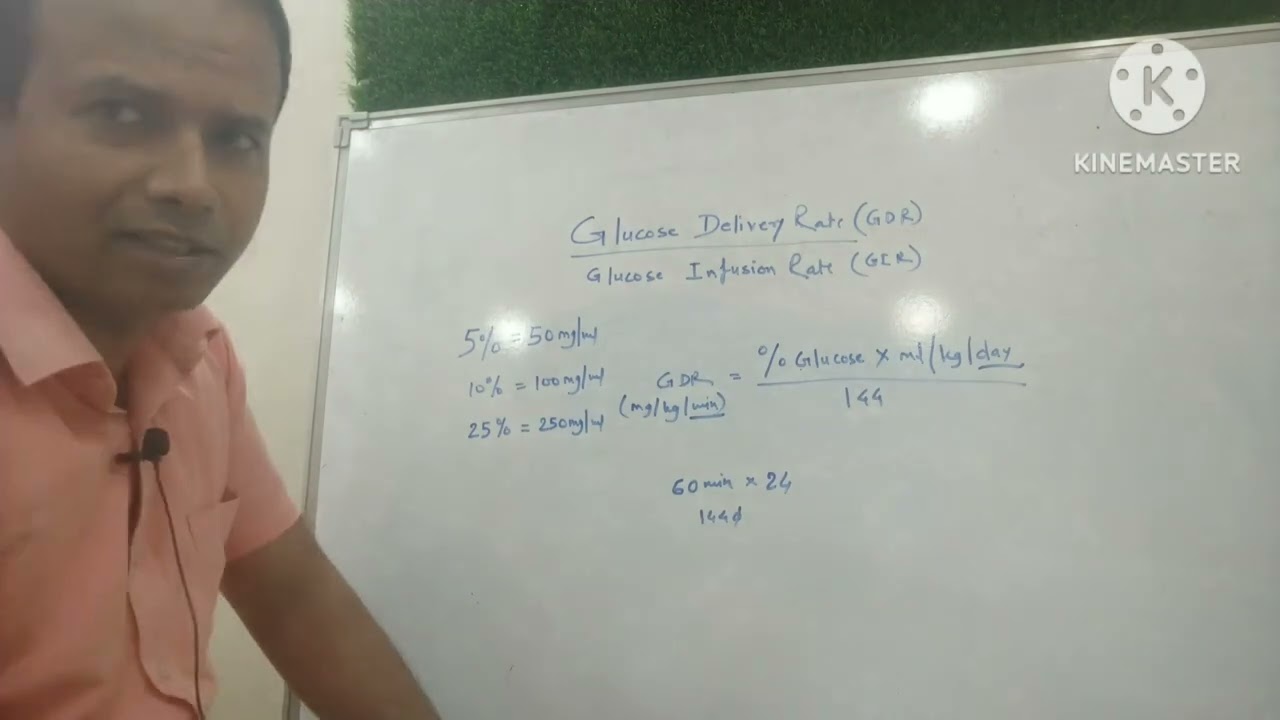 K
KINEMASTER
Glucose Delivery Rate (GDR)
Glucose Infusion Rate (GIR)
5% = 50mg/ml
10% = 100mg/ml
25% = 250mg/ml
GDR = % Glucose × ml/kg/day
(mg/kg/min) 144
60 min × 24
1440